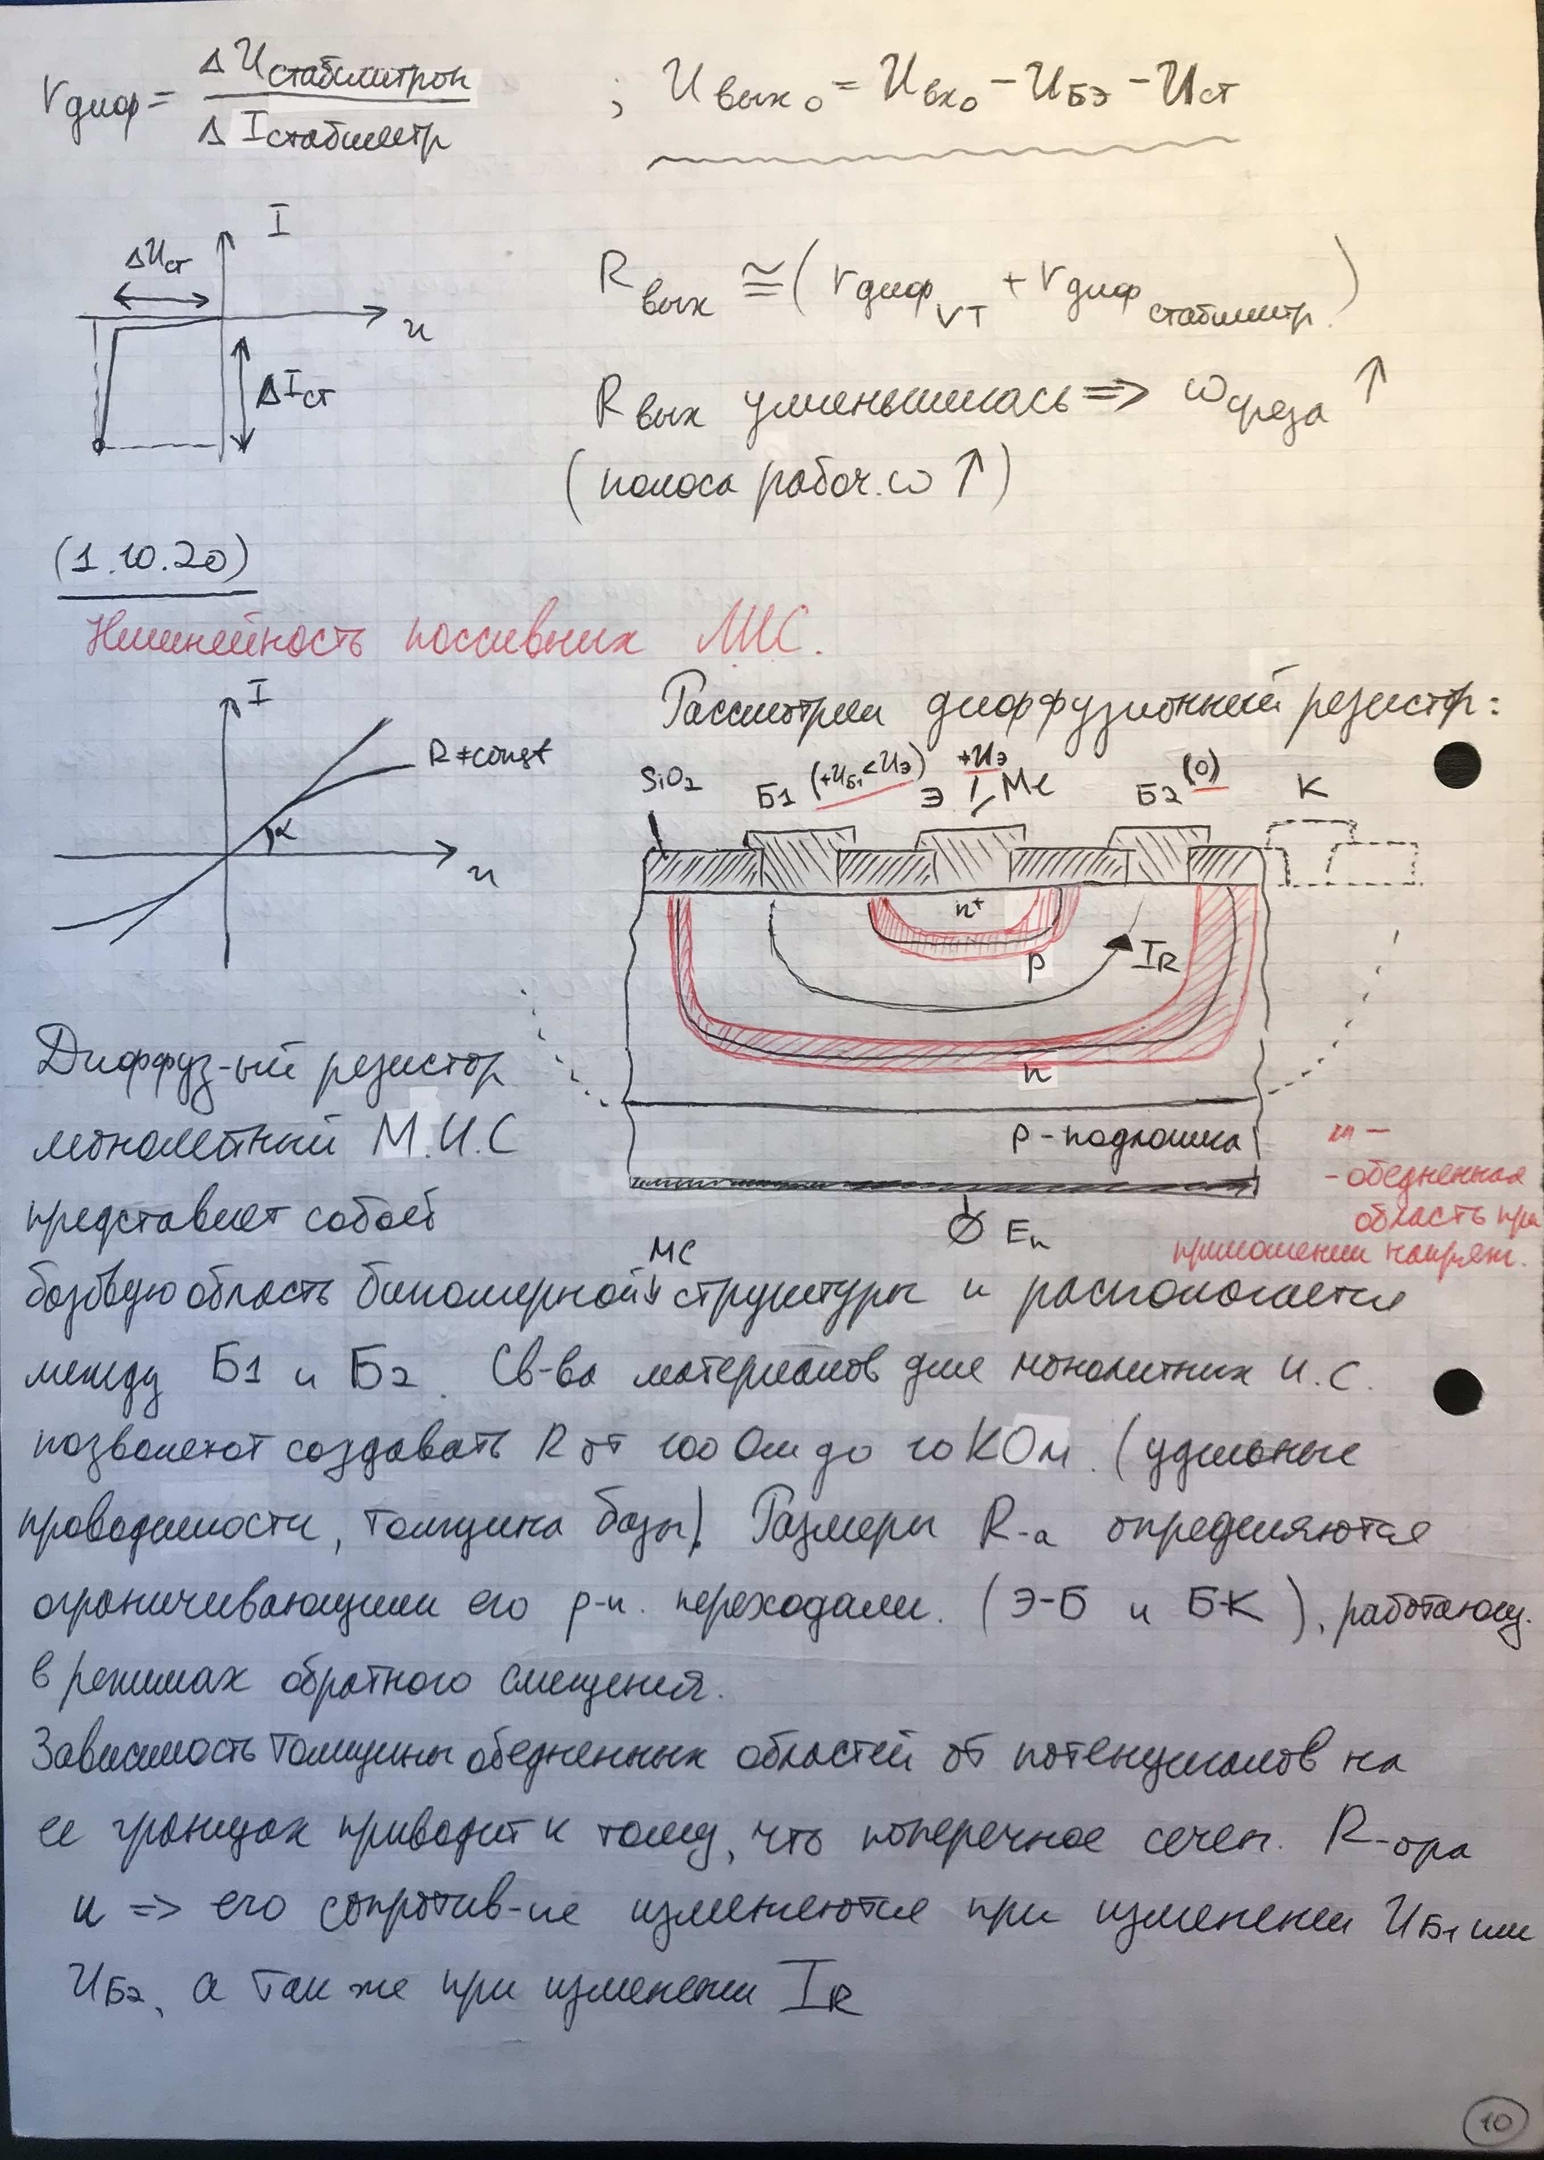 r диф = ΔU стабилитрон / ΔI стабилитр ; U вых₀ = U вх₀ − U БЭ − U ст
I
ΔU ст
u
ΔI ст
R вых ≅ (r диф VT + r диф стабилитр.)
R вых уменьшилась => ω среза ↑
(полоса рабоч. ω ↑)
(1.10.20)
Нелинейность пассивных ИС.
I
R ≠ const
α
u
Рассмотрим диффузионный резистр:
SiO₂ Б1 (+U Б1 < U Э) Э +U Э Ме Б2 (0) К
n⁺
p
I R
n
p - подложка
Еп
- обедненная
область при
приложении напряж.
Диффуз-ый резистор
монолитный М.И.С
представляет собой
базовую область биполярной МС структуры и располагается
между Б1 и Б2. Св-ва материалов для монолитных И.С.
позволяют создавать R от 100 Ом до 10 КОм. (удельные
проводимости, толщина базы). Размеры R-а определяются
ограничивающими его p-n. переходами. (Э-Б и Б-К), работающ.
в режимах обратного смещения.
Зависимость толщины обедненных областей от потенциалов на
ее границах приводит к тому, что поперечное сечен. R-ора
и => его сопротив-ие изменяются при изменении U Б1 или
U Б2, а так же при изменении I R
10